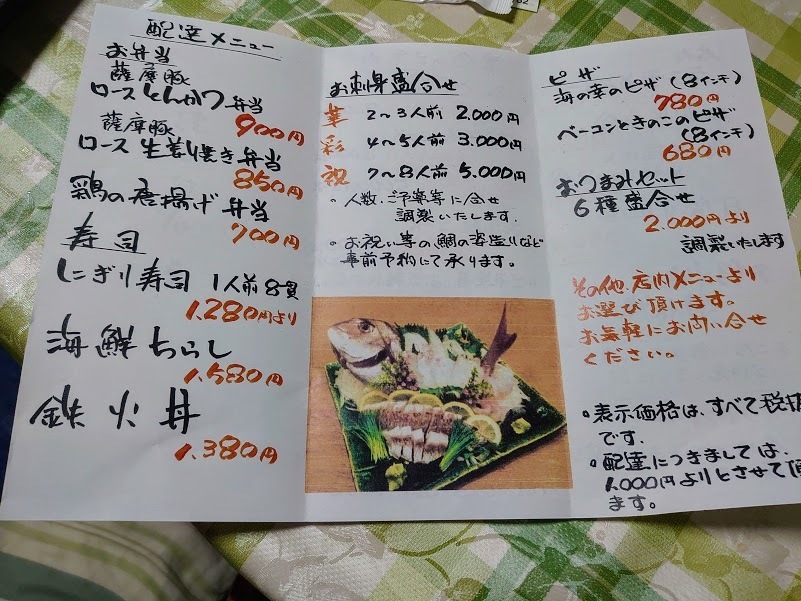 配達メニュー
お弁当
薩摩豚
ロースとんかつ弁当
900円
薩摩豚
ロース生姜焼き弁当
850円
鶏の唐揚げ弁当
700円
寿司
にぎり寿司 1人前8貫
1.280円より
海鮮ちらし
1.580円
鉄火丼
1.380円
お刺身盛合せ
華 2~3人前 2.000円
彩 4~5人前 3.000円
祝 7~8人前 5.000円
・人数、ご予算等に合せ
調製いたします.
・お祝い等の鯛の姿造りなど
事前予約にて承ります。
ピザ
海の幸のピザ(8インチ)
780円
ベーコンときのこのピザ
(8インチ)
680円
おつまみセット
6種盛合せ
2.000円より
調製いたします
その他、店内メニューより
お選び頂けます。
お気軽にお問い合せ
ください。
・表示価格は、すべて税抜
です.
・配達につきましては、
1.000円よりとさせて頂
ます。
62